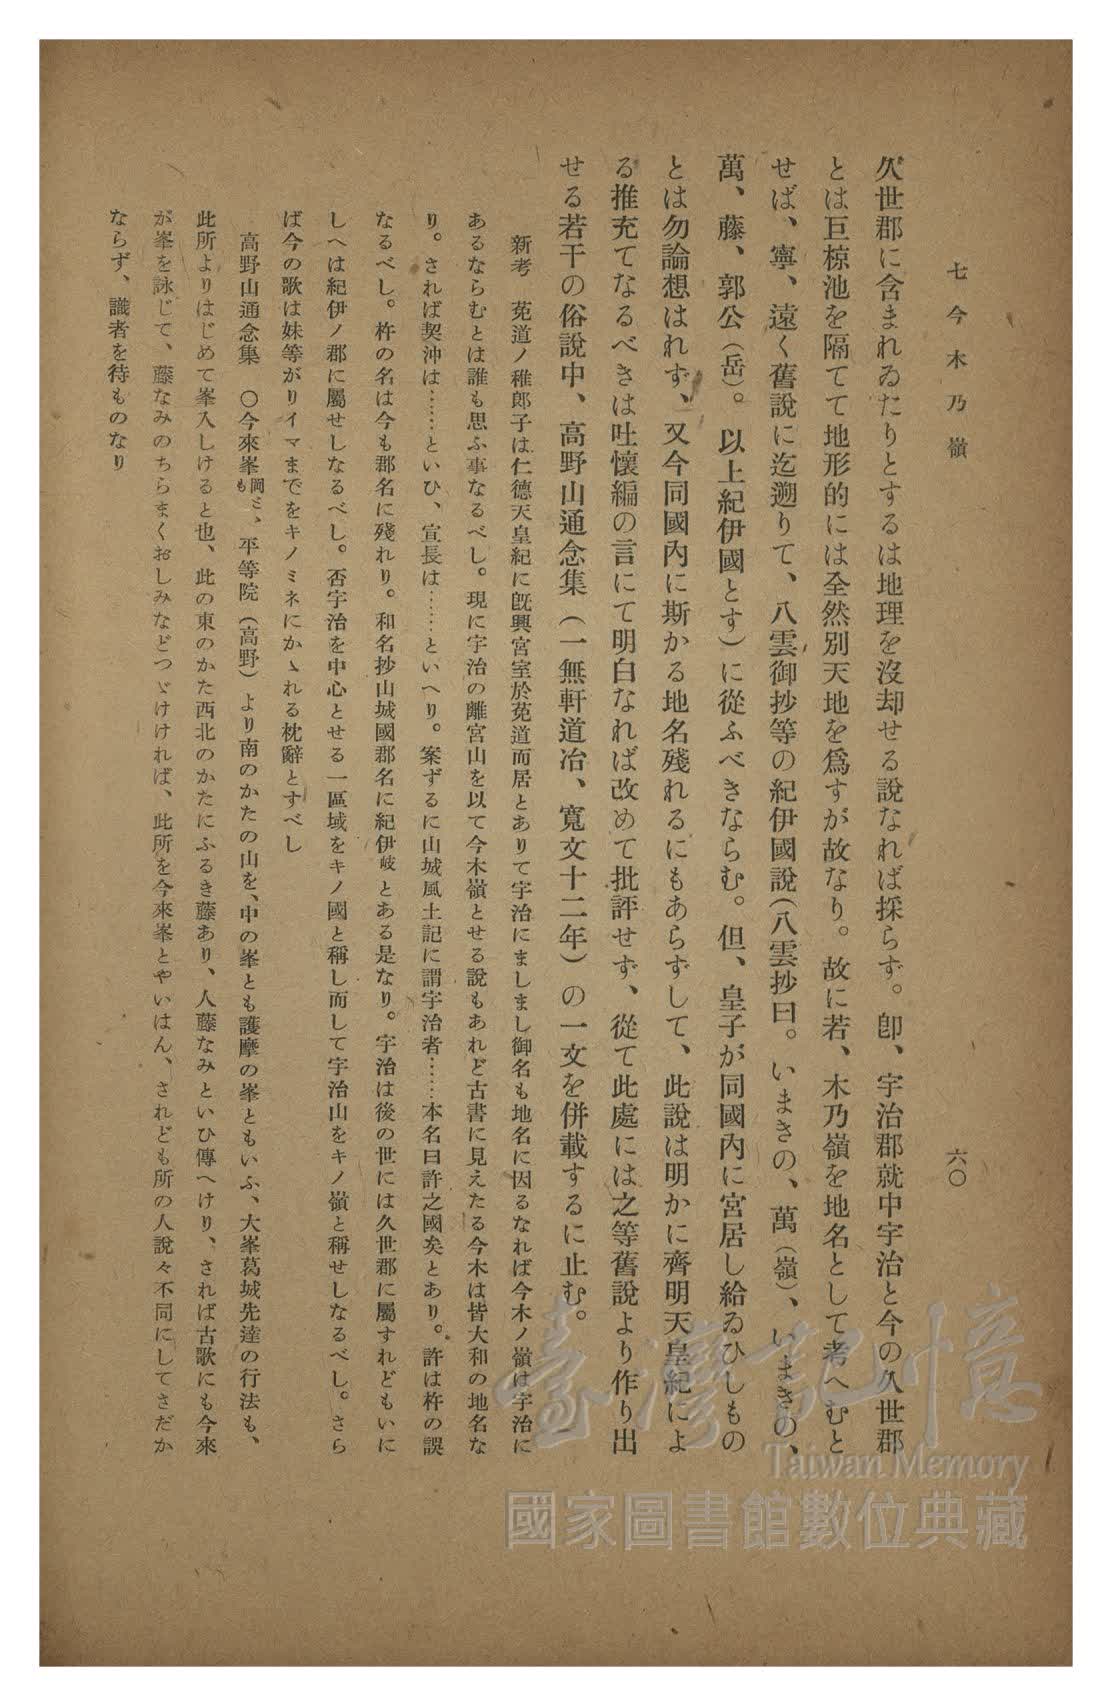 七 今木乃嶺
六〇
久世郡に含まれゐたりとするは地理を沒却せる說なれば採らず。卽、宇治郡就中宇治と今の久世郡
とは巨椋池を隔てて地形的には全然別天地を爲すが故なり。故に若、木乃嶺を地名として考へむと
せば、寧、遠く舊說に迄遡りて、八雲御抄等の紀伊國說(八雲抄曰。いまきの、萬(嶺)、いまきの、
萬、藤、郭公(岳)。以上紀伊國とす)に從ふべきならむ。但、皇子が同國內に宮居し給ゐひしもの
とは勿論想はれず、又今同國內に斯かる地名殘れるにもあらずして、此說は明かに齊明天皇紀によ
る推充てなるべきは吐懷編の言にて明白なれば改めて批評せず、從て此處には之等舊說より作り出
せる若干の俗說中、高野山通念集(一無軒道冶、寬文十二年)の一文を併載するに止む。
新考 莵道ノ稚郎子は仁德天皇紀に旣興宮室於莵道而居とありて宇治にましまし御名も地名に因るなれば今木ノ嶺は宇治に
あるならむとは誰も思ふ事なるべし。現に宇治の離宮山を以て今木嶺とせる說もあれど古書に見えたる今木は皆大和の地名な
り。されば契沖は……といひ、宣長は……といへり。案ずるに山城風土記に謂宇治者……本名曰許之國矣とあり。許は杵の誤
なるべし。杵の名は今も郡名に殘れり。和名抄山城國郡名に紀伊岐とある是なり。宇治は後の世には久世郡に屬すれどもいに
しへは紀伊ノ郡に屬せしなるべし。否宇治を中心とせる一區域をキノ國と稱し而して宇治山をキノ嶺と稱せしなるべし。さら
ば今の歌は妹等がりイマまでをキノミネにかゝれる枕辭とすべし
高野山通念集 〇今來峯岡とも、平等院(高野)より南のかたの山を、中の峯とも護摩の峯ともいふ、大峯葛城先達の行法も、
此所よりはじめて峯入しけると也、此の東のかた西北のかたにふるき藤あり、人藤なみといひ傳へけり、されば古歌にも今來
が峯を詠じて、藤なみのちらまくおしみなどつゞけければ、此所を今來峯とやいはん、されども所の人說々不同にしてさだか
ならず、識者を待ものなり
臺灣記憶
Taiwan Memory
國家圖書館數位典藏